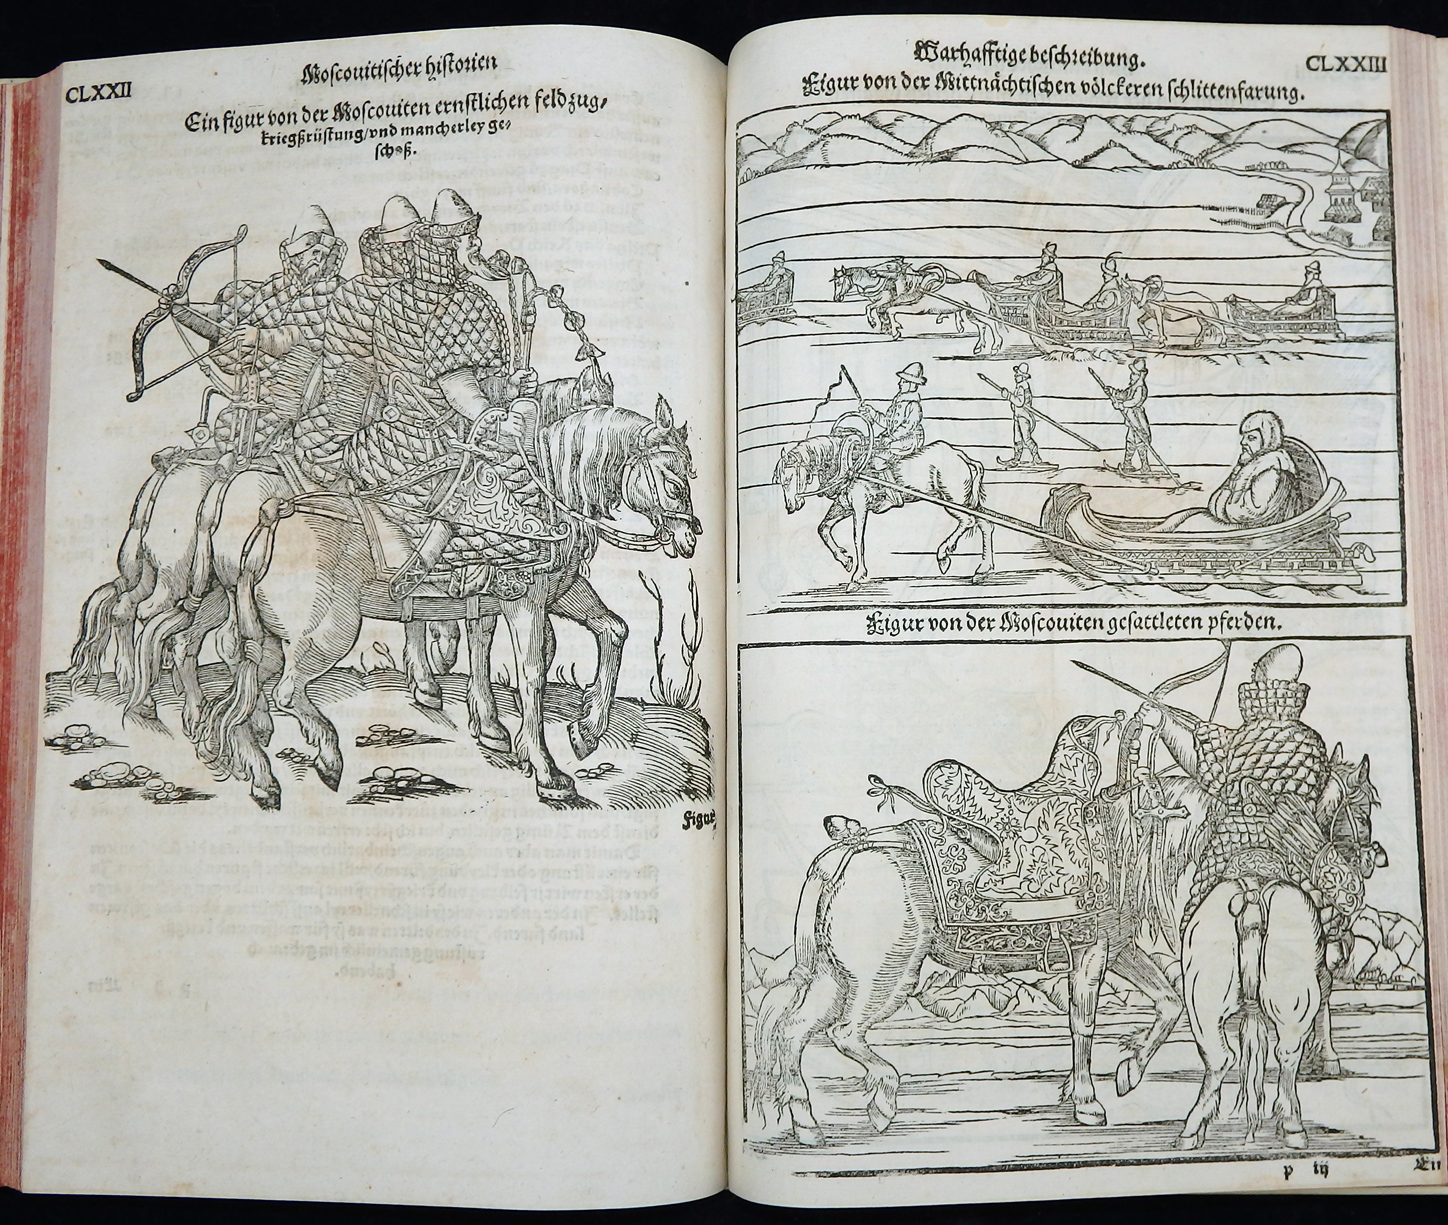 CLXXII
Moscouitischer historien
Ein figur von der Moscouiten ernstlichen feldzug,
kriegßrüstung/vnd mancherley ge-
schoß.
Figur
Warhafftige beschreibung.
CLXXIII
Figur von der Mittnächtischen völckeren schlittenfarung.
Figur von der Moscouiten gesattleten pferden.
p iij